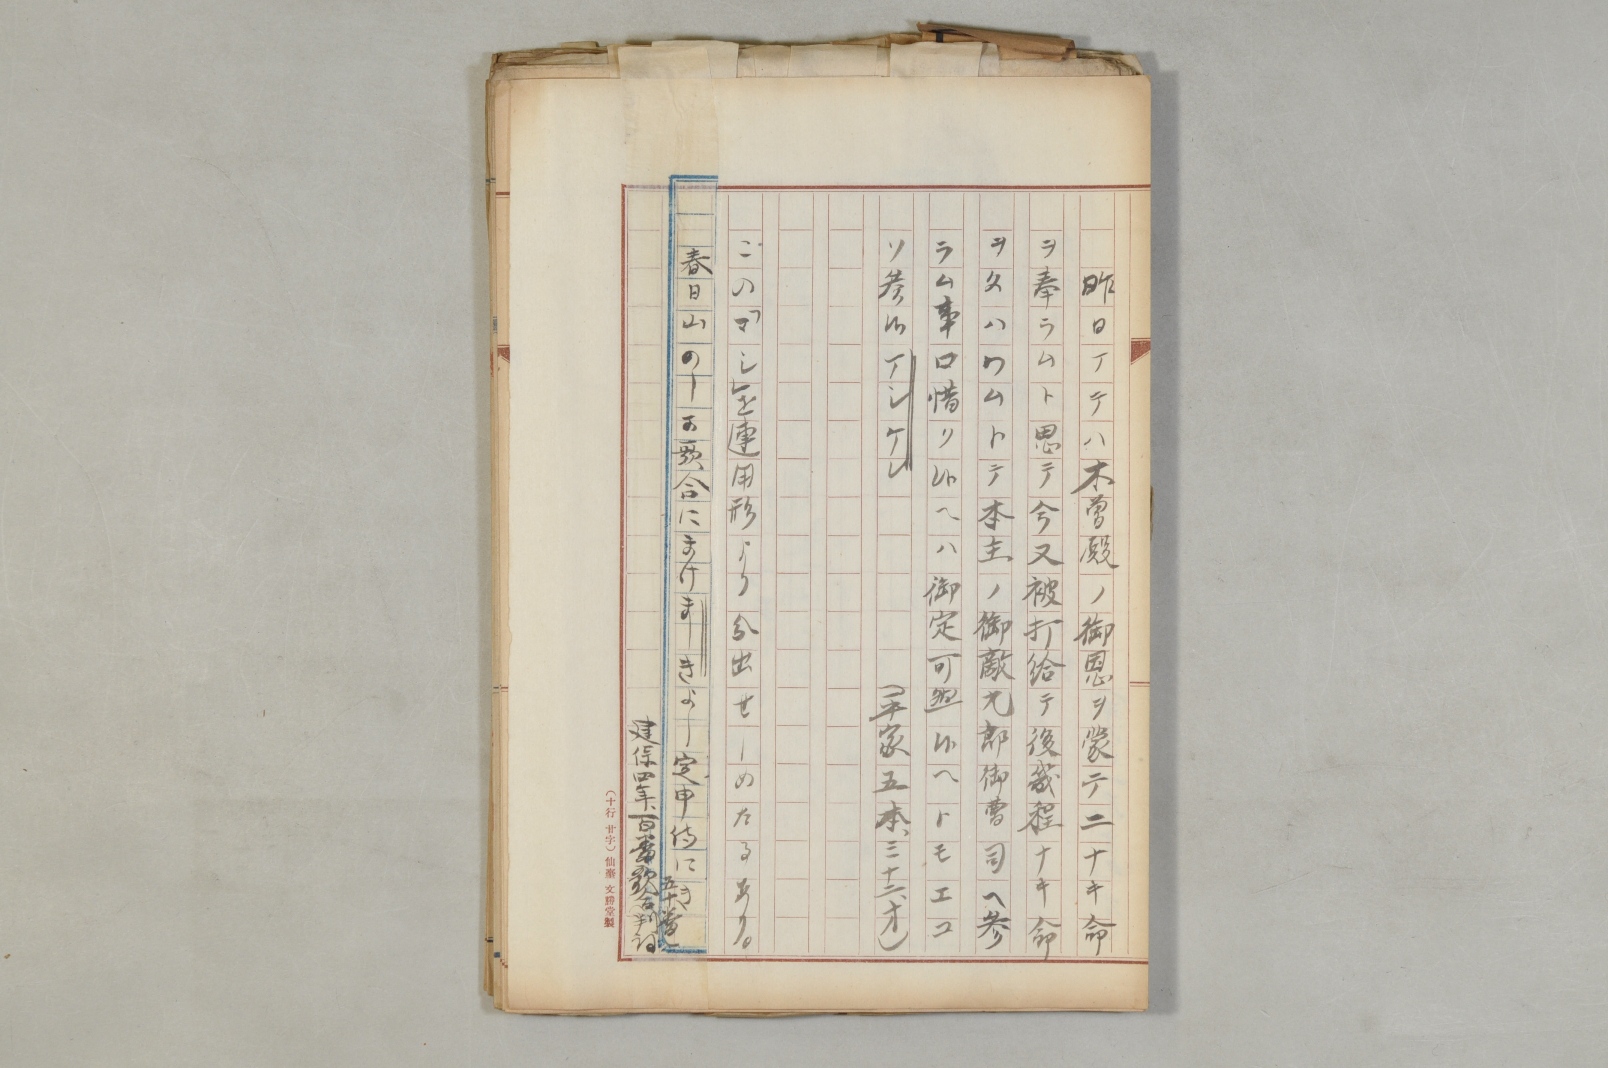 昨日マテハ木曽殿ノ御恩ヲ蒙テ二ナキ命
ヲ奉ラムト思テ今又被打給テ後幾程ナキ命
ヲタハワムトテ本主ノ御敵九郎御曹司ヘ参
ラム事口惜ク候ヘハ御定可然候ヘトモエコ
ソ参候マシケレ
(平家五本、三十六オ)
この「マシ」を連用形より分出せしめたるあり。
春日山の一の歌合にまけましきよし定申侍にき
建保四年、百番歌合判詞
五十番
(十行 廿字) 仙臺 文勝堂製